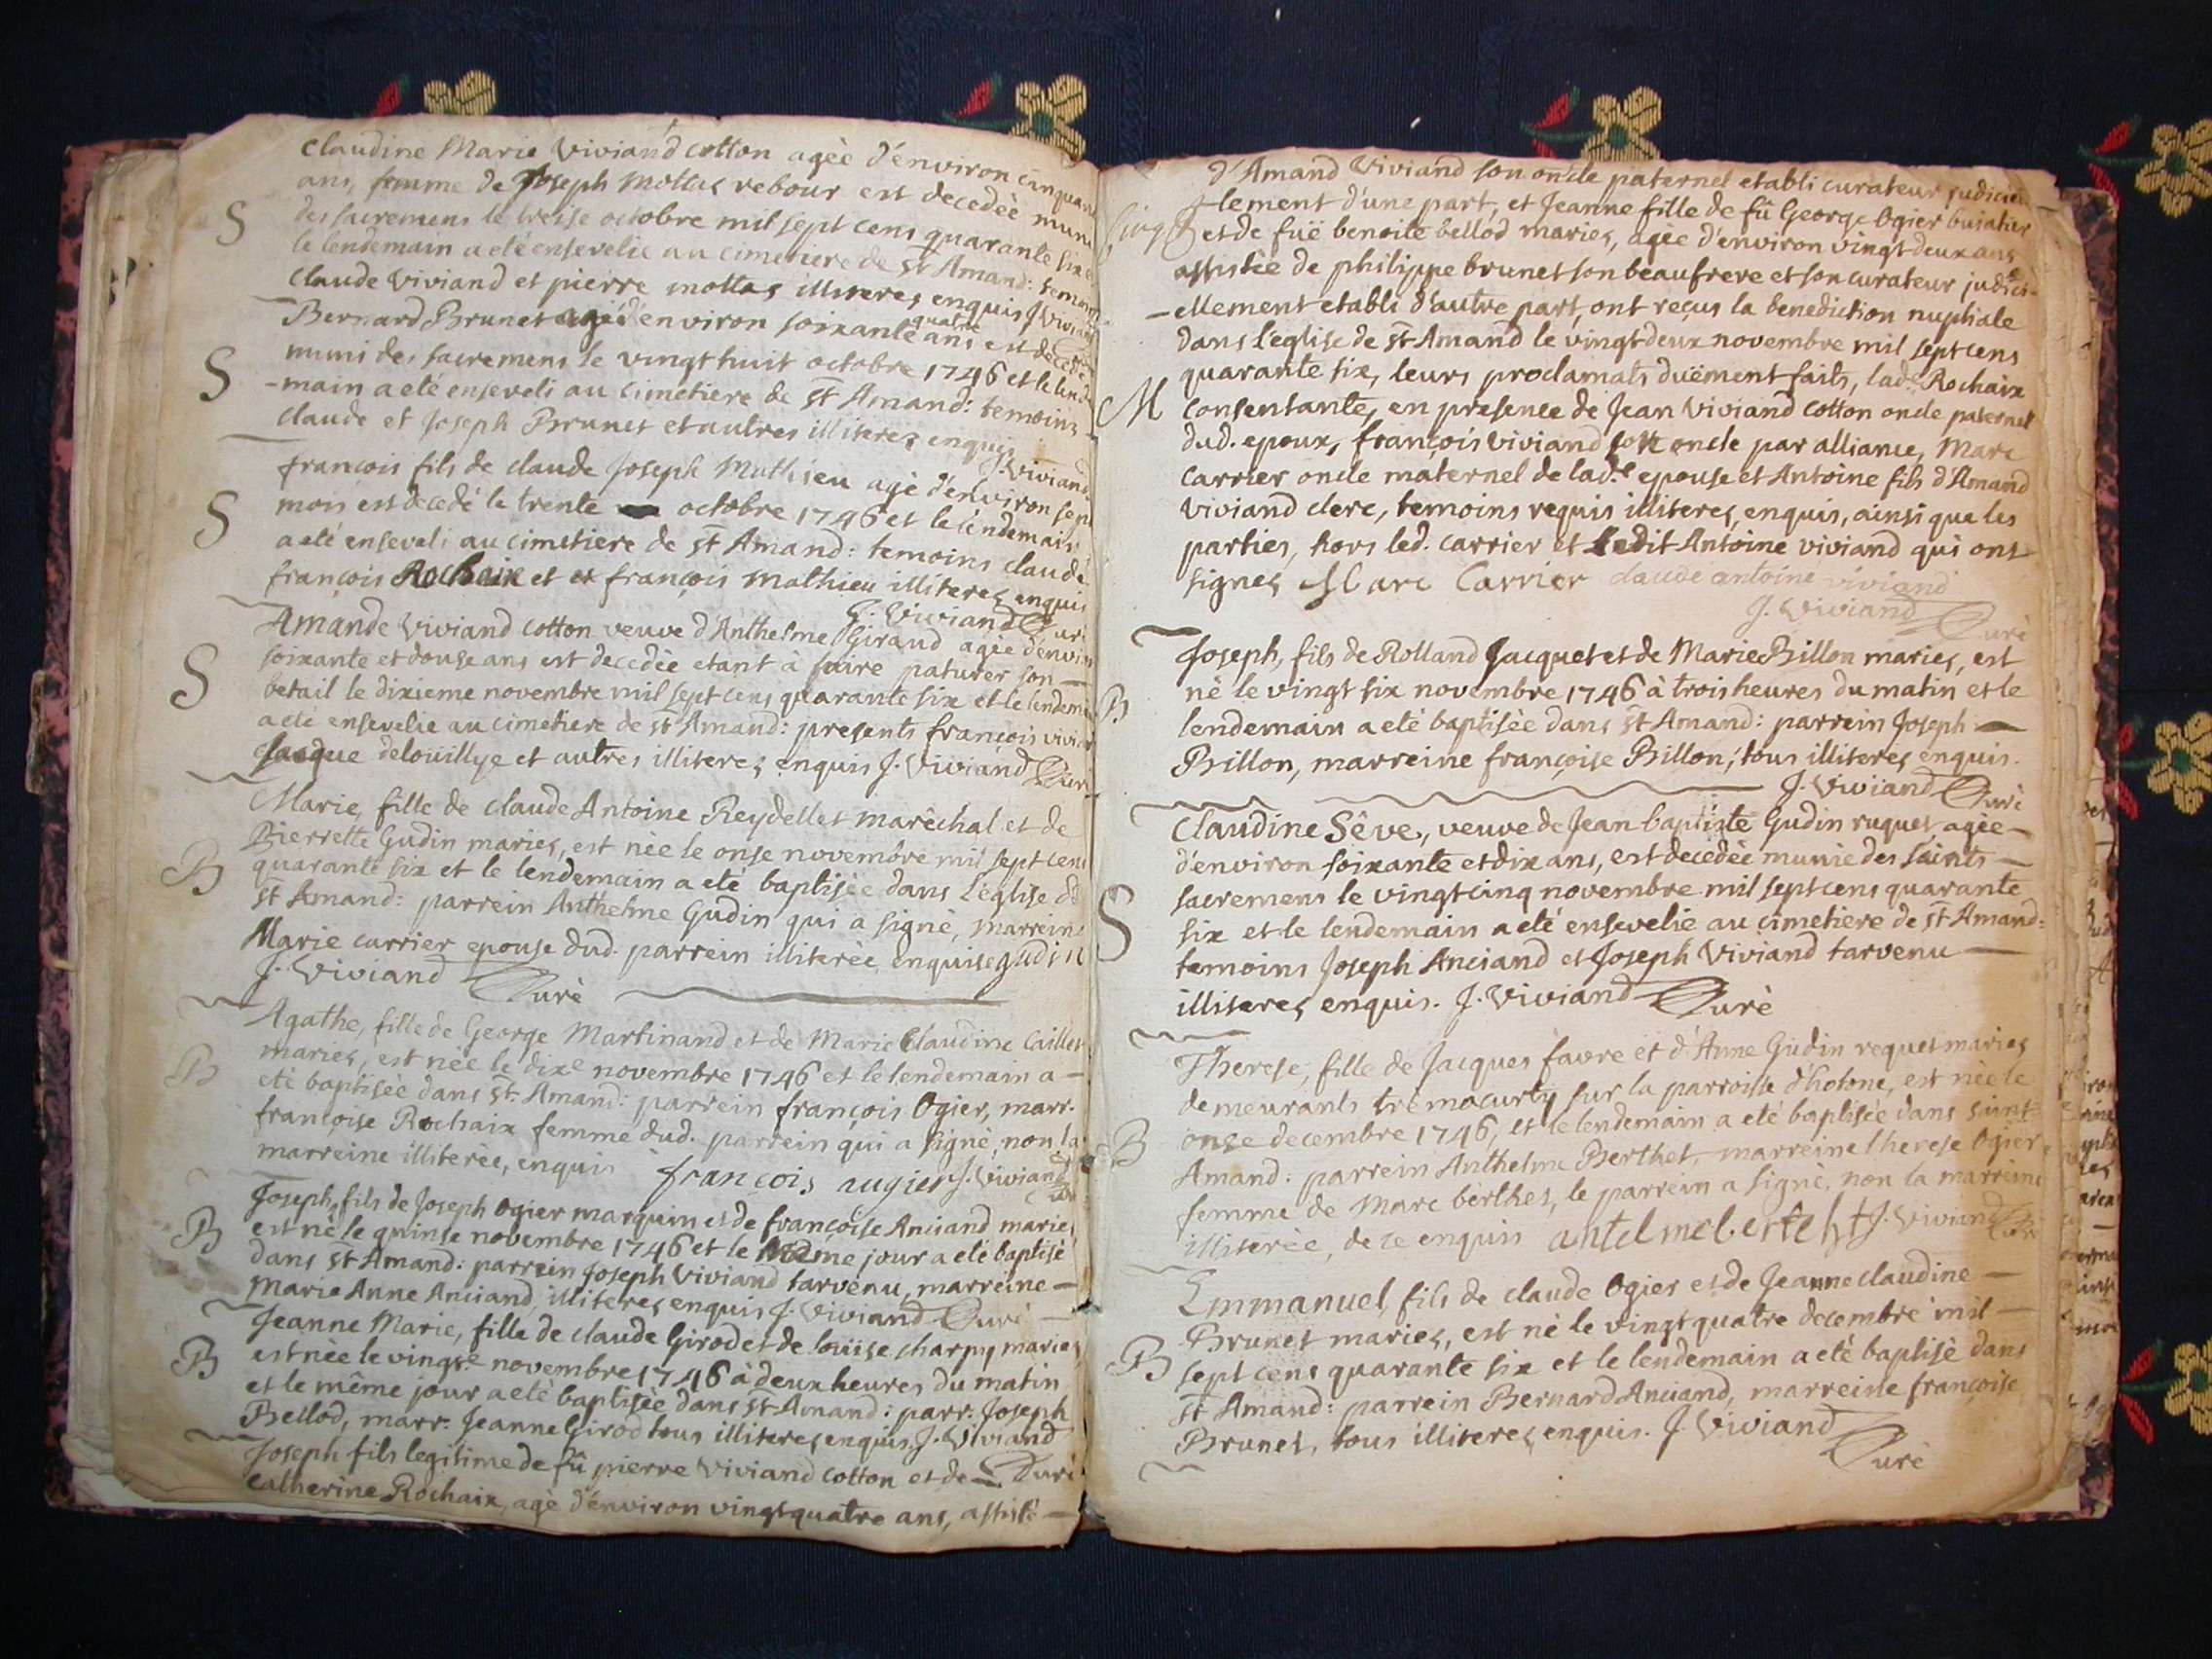 Claudine Marie Viviand cotton agèe d'environ cinquan
ans, femme de Joseph Mottas rebour est decedèe muni
S des sacremens le treise octobre mil sept cens quarante six
le lendemain a eté ensevelie au cimetiere de St Amand: temoin
claude Viviand et pierre mottas illiteres enquis J. Viviand
Bernard Brunet agé d'environ soixante quatre ans est decedé
S muni des sacremens le vingt huit octobre 1746 et le lende
-main a eté enseveli au cimetiere de St Amand: temoins
claude et Joseph Brunet et autres illiteres enquis
J. Viviand
françois fils de claude Joseph Mathieu agè d'environ sept
S mois est decedé le trente octobre 1746 et le lendemain
a eté enseveli au cimetiere de St Amand: temoins claude
françois Rochaix et françois Mathieu illiteres enquis
J. Viviand Curé
Amande Viviand cotton veuve d'Anthelme Giraud agèe d'envir
soixante et douse ans est decedèe etant à faire paturer son
S betail le dixieme novembre mil sept cens quarante six et le lendem
a eté ensevelie au cimetiere de st Amand: presents françois vivian
Jacque delouillye et autres illiteres enquis J. Viviand Curé
Marie, fille de claude Antoine Reydellet marêchal et de
Pierrette Gudin maries, est nèe le onse novembre mil sept cens
B quarante six et le lendemain a eté baptisèe dans l'eglise de
st Amand: parrein Anthelme Gudin qui a signè, marreine
Marie carrier epouse dud. parrein illiterèe, enquise gudin
J. Viviand Curè
Agathe, fille de George Martinand et de Marie Claudine Caillet
B maries, est nèe le dixe novembre 1746 et le lendemain a
eté baptisèe dans st Amand: parrein françois Ogier, marr.
françoise Rochaix femme dud. parrein qui a signè, non la
marreine illiterèe, enquis françois augier J. Viviand
Joseph, fils de Joseph Ogier marquin et de françoise Anciand maries
B est nè le quinse novembre 1746 et le même jour a eté baptisé
dans st Amand: parrein Joseph Viviand tarvenu, marreine
Marie Anne Anciand, illiteres enquis J. Viviand Curè
Jeanne Marie, fille de claude Girod et de louise charpy maries
B est nèe le vingte novembre 1746 à deux heures du matin
et le même jour a eté baptisèe dans st Amand: parr. Joseph
Bellod, marr. Jeanne Girod tous illiteres enquis. J. Viviand
Curè
Joseph fils legitime de fû pierre Viviand cotton et de
catherine Rochaix, agè d'environ vingt quatre ans, assistè
d'Amand Viviand son oncle paternel etabli curateur judiciel
-lement d'une part, et Jeanne fille de fû George Ogier
et de fuë benoite bellod maries, agèe d'environ vingt deux ans
assistèe de philippe brunet son beaufrere et son curateur judici
-ellement etabli d'autre part, ont reçus la benediction nuptiale
dans l'eglise de st Amand le vingt deux novembre mil sept cens
quarante six, leurs proclamats duëment faits, lade Rochaix
M consentante, en presence de Jean Viviand cotton oncle paternel
dud. epoux, françois viviand son oncle par alliance, Marc
carrier oncle maternel de lade epouse et Antoine fils d'Amand
Viviand clerc, temoins requis illiteres, enquis, ainsi que les
parties, hors led. carrier et ledit Antoine viviand qui ont
signes Marc Carrier claude antoine viviand
J. Viviand Curè
Joseph, fils de Rolland Jacquet et de Marie Billon maries, est
B né le vingt six novembre 1746 à trois heures du matin et le
lendemain a eté baptisèe dans st Amand: parrein Joseph
Billon, marreine françoise Billon, tous illiteres enquis.
J. Viviand Curè
Claudine Sêve, veuve de Jean baptiste Gudin ruquet, agèe
d'environ soixante et dix ans, est decedèe munie des saints
S sacremens le vingt cinq novembre mil sept cens quarante
six et le lendemain a eté ensevelie au cimetiere de st Amand:
temoins Joseph Anciand et Joseph Viviand tarvenu
illiteres enquis. J. Viviand Curè
Therese, fille de Jacques favre et d'Anne Gudin requet maries
demeurants tremocurty sur la parroisse d'hotone, est nèe le
B onze decembre 1746, et le lendemain a eté baptisèe dans saint
Amand: parrein Anthelme Berthet, marreine therese Ogier
femme de Marc berthet, le parrein a signè, non la marreine
illiterèe, de ce enquis antelme berteht J. Viviand Curè
Emmanuel, fils de claude Ogier et de Jeanne claudine
Brunet maries, est nè le vingt quatre decembre mil
B sept cens quarante six et le lendemain a eté baptisè dans
st Amand: parrein Bernard Anciand, marreine françoise
Brunet, tous illiteres, enquis. J. Viviand
Curè